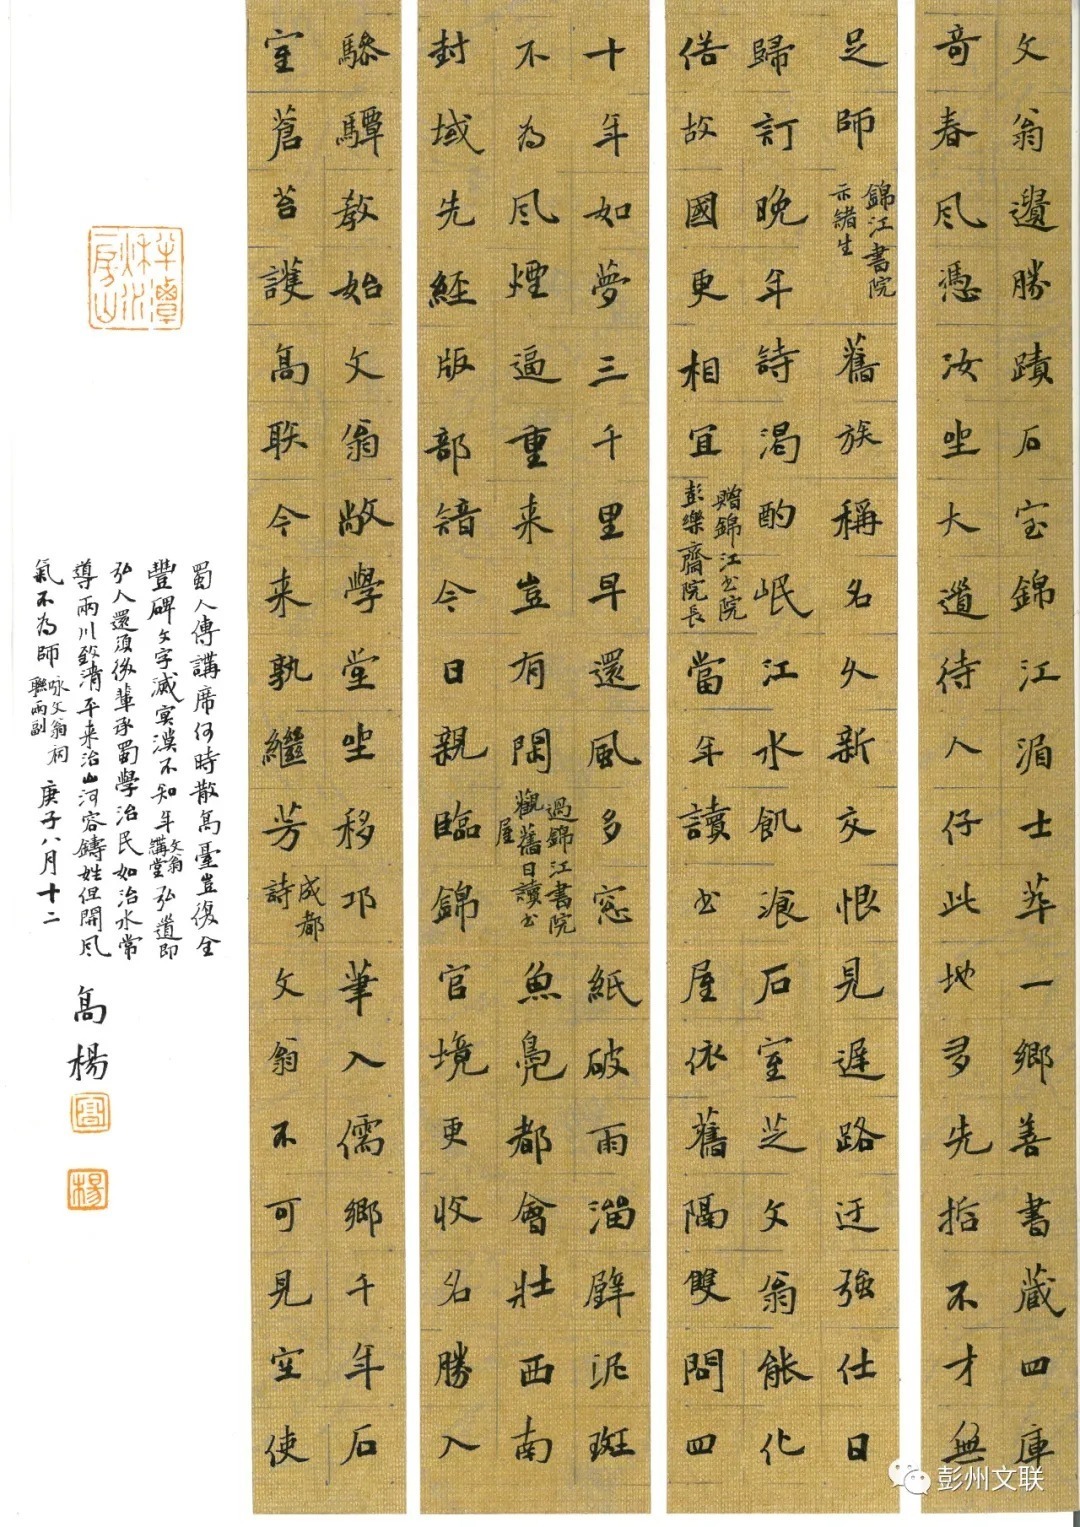 文翁遺勝蹟石室錦江湄士萃一鄉善書藏四庫
奇春風憑汝坐大道待人仔此地多先哲不才無
足師
錦江書院
示諸生
舊族稱名久新交恨見遲路迂強仕日
歸訂晚年詩渴酌岷江水飢湌石室芝文翁能化
俗故國更相宜
贈錦江书院
彭樂齋院長
當年讀书屋依舊隔雙問四
十年如夢三千里早還風多窓紙破雨溜壁泥斑
不為風煙逼重来豈有閑
過錦江書院
觀舊日讀书
屋
魚鳧都會壯西南
封域先經版部諳今日親臨錦官境更收名勝入
驂驔教始文翁敞學堂坐移邛筆入儒鄉千年石
室蒼苔護高联今来孰繼芳
成都
詩
文翁不可見空使
蜀人傳講席何時散高臺豈復全
豐碑文字滅冥漠不知年
文翁
講堂
弘道即
弘人還須後輩承蜀學治民如治水常
導兩川致清平来治山河容鑄姓但開风
氣不為師
咏文翁祠
聯兩副
庚子八月十二
高楊
高
楊
半潭秋水一房山
彭州文联